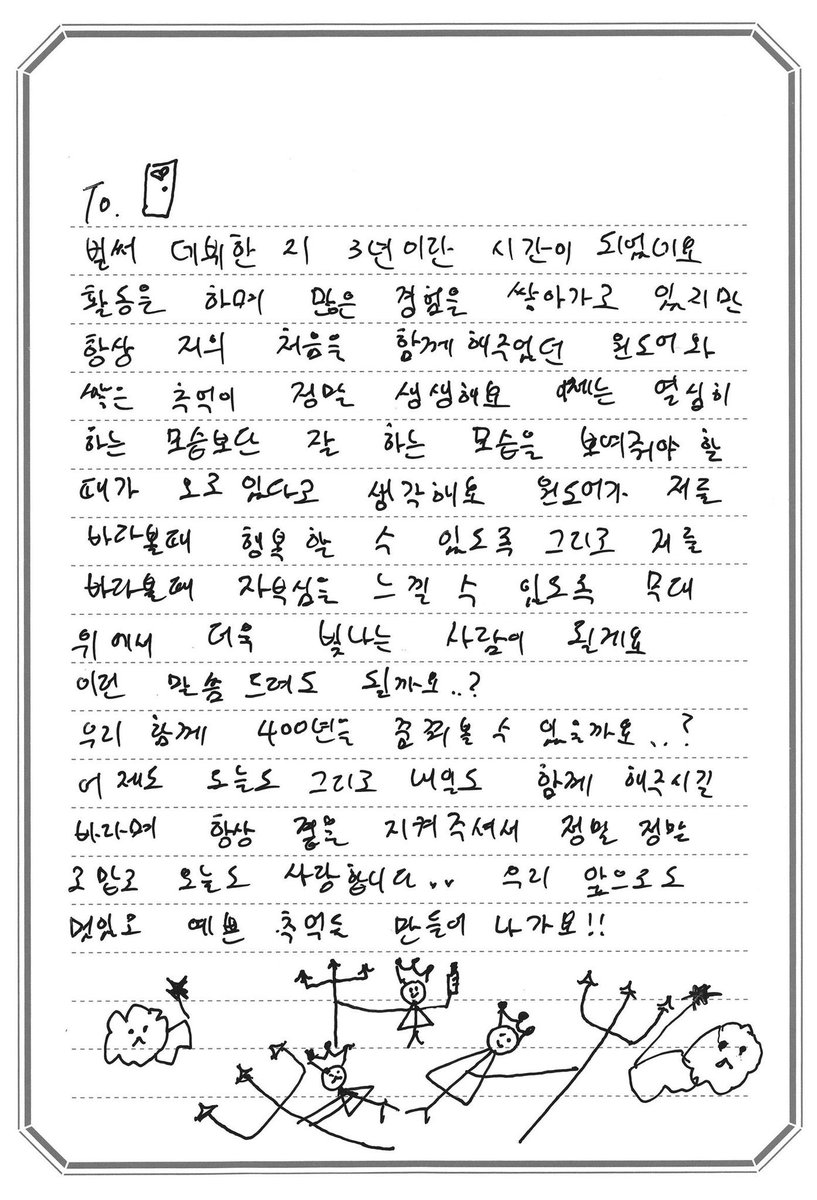 To.
벌써 데뷔한 지 3년이란 시간이 되었네요
활동을 하며 많은 경험을 쌓아가고 있지만
항상 저의 처음을 함께 해주었던 원도어와
쌓은 추억이 정말 생생해요 이제는 열심히
하는 모습보단 잘 하는 모습을 보여줘야 할
때가 오고 있다고 생각해요 원도어가 저를
바라볼때 행복 할 수 있도록 그리고 저를
바라볼때 자부심을 느낄 수 있도록 무대
위에서 더욱 빛나는 사람이 될게요
이런 말씀 드려도 될까요..?
우리 함께 400년을 꿈꿔볼 수 있을까요..?
어제도 오늘도 그리고 내일도 함께 해주시길
바라며 항상 곁을 지켜주셔서 정말 정말
고맙고 오늘도 사랑합니다.. 우리 앞으로도
멋있고 예쁜 추억들 만들어 나가요!!